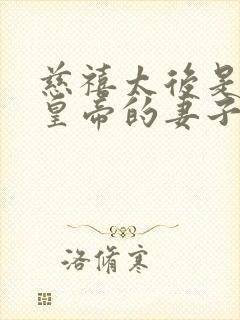 慈禧太後是
皇帝的妻子
洛脩寒